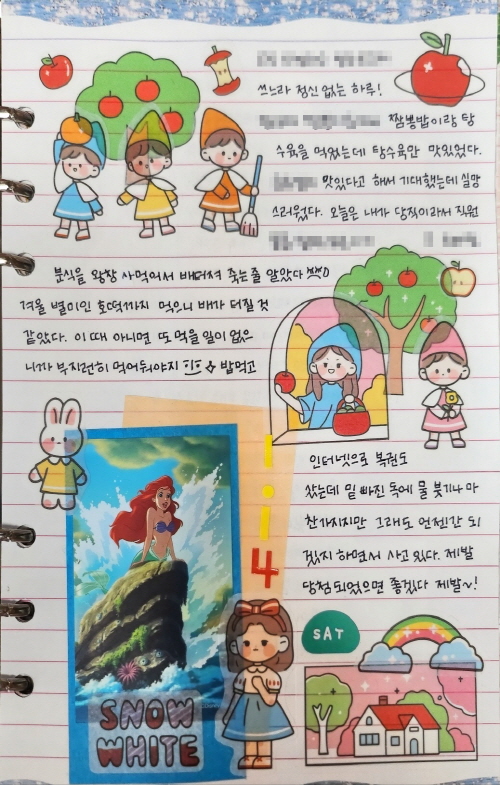 쓰느라 정신 없는 하루!
짬뽕밥이랑 탕
수육을 먹었는데 탕수육만 맛있었다.
맛있다고 해서 기대했는데 실망
스러웠다. 오늘은 내가 당직이라서 직원
분식을 왕창 사먹어서 배터져 죽는줄 알았다
겨울 별미인 호떡까지 먹으니 배가 터질 것
같았다. 이 때 아니면 또 먹을 일이 없으
니까 부지런히 먹어둬야지 밥먹고
인터넷으로 복권도
샀는데 밑 빠진 독에 물 붓기나 마
찬가지지만 그래도 언젠간 되
겠지 하면서 사고 있다. 제발
당첨 되었으면 좋겠다 제발~!
4
SAT
SNOW
WHITE